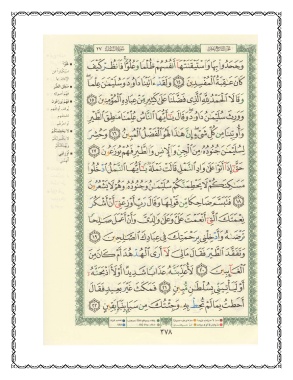 وَجَحَدُوا۟ بِهَا وَٱسْتَيْقَنَتْهَآ أَنفُسُهُمْ ظُلْمًا وَعُلُوًّا ۚ فَٱنظُرْ كَيْفَ
كَانَ عَـٰقِبَةُ ٱلْمُفْسِدِينَ ١٤ وَلَقَدْ ءَاتَيْنَا دَاوُۥدَ وَسُلَيْمَـٰنَ عِلْمًا ۖ
وَقَالَا ٱلْحَمْدُ لِلَّهِ ٱلَّذِى فَضَّلَنَا عَلَىٰ كَثِيرٍ مِّنْ عِبَادِهِ ٱلْمُؤْمِنِينَ ١٥
وَوَرِثَ سُلَيْمَـٰنُ دَاوُۥدَ ۖ وَقَالَ يَـٰٓأَيُّهَا ٱلنَّاسُ عُلِّمْنَا مَنطِقَ ٱلطَّيْرِ
وَأُوتِينَا مِن كُلِّ شَىْءٍ ۖ إِنَّ هَـٰذَا لَهُوَ ٱلْفَضْلُ ٱلْمُبِينُ ١٦ وَحُشِرَ
لِسُلَيْمَـٰنَ جُنُودُهُۥ مِنَ ٱلْجِنِّ وَٱلْإِنسِ وَٱلطَّيْرِ فَهُمْ يُوزَعُونَ ١٧
حَتَّىٰٓ إِذَآ أَتَوْا۟ عَلَىٰ وَادِ ٱلنَّمْلِ قَالَتْ نَمْلَةٌ يَـٰٓأَيُّهَا ٱلنَّمْلُ ٱدْخُلُوا۟
مَسَـٰكِنَكُمْ لَا يَحْطِمَنَّكُمْ سُلَيْمَـٰنُ وَجُنُودُهُۥ وَهُمْ لَا يَشْعُرُونَ
١٨ فَتَبَسَّمَ ضَاحِكًا مِّن قَوْلِهَا وَقَالَ رَبِّ أَوْزِعْنِىٓ أَنْ أَشْكُرَ
نِعْمَتَكَ ٱلَّتِىٓ أَنْعَمْتَ عَلَىَّ وَعَلَىٰ وَٰلِدَىَّ وَأَنْ أَعْمَلَ صَـٰلِحًا
تَرْضَىٰهُ وَأَدْخِلْنِى بِرَحْمَتِكَ فِى عِبَادِكَ ٱلصَّـٰلِحِينَ ١٩
وَتَفَقَّدَ ٱلطَّيْرَ فَقَالَ مَا لِىَ لَآ أَرَى ٱلْهُدْهُدَ أَمْ كَانَ مِنَ
ٱلْغَآئِبِينَ ٢٠ لَأُعَذِّبَنَّهُۥ عَذَابًا شَدِيدًا أَوْ لَأَا۟ذْبَحَنَّهُۥٓ
أَوْ لَيَأْتِيَنِّى بِسُلْطَـٰنٍ مُّبِينٍ ٢١ فَمَكَثَ غَيْرَ بَعِيدٍ فَقَالَ
أَحَطتُ بِمَا لَمْ تُحِطْ بِهِۦ وَجِئْتُكَ مِن سَبَإٍۭ بِنَبَإٍ يَقِينٍ ٢٢
٣٧٨